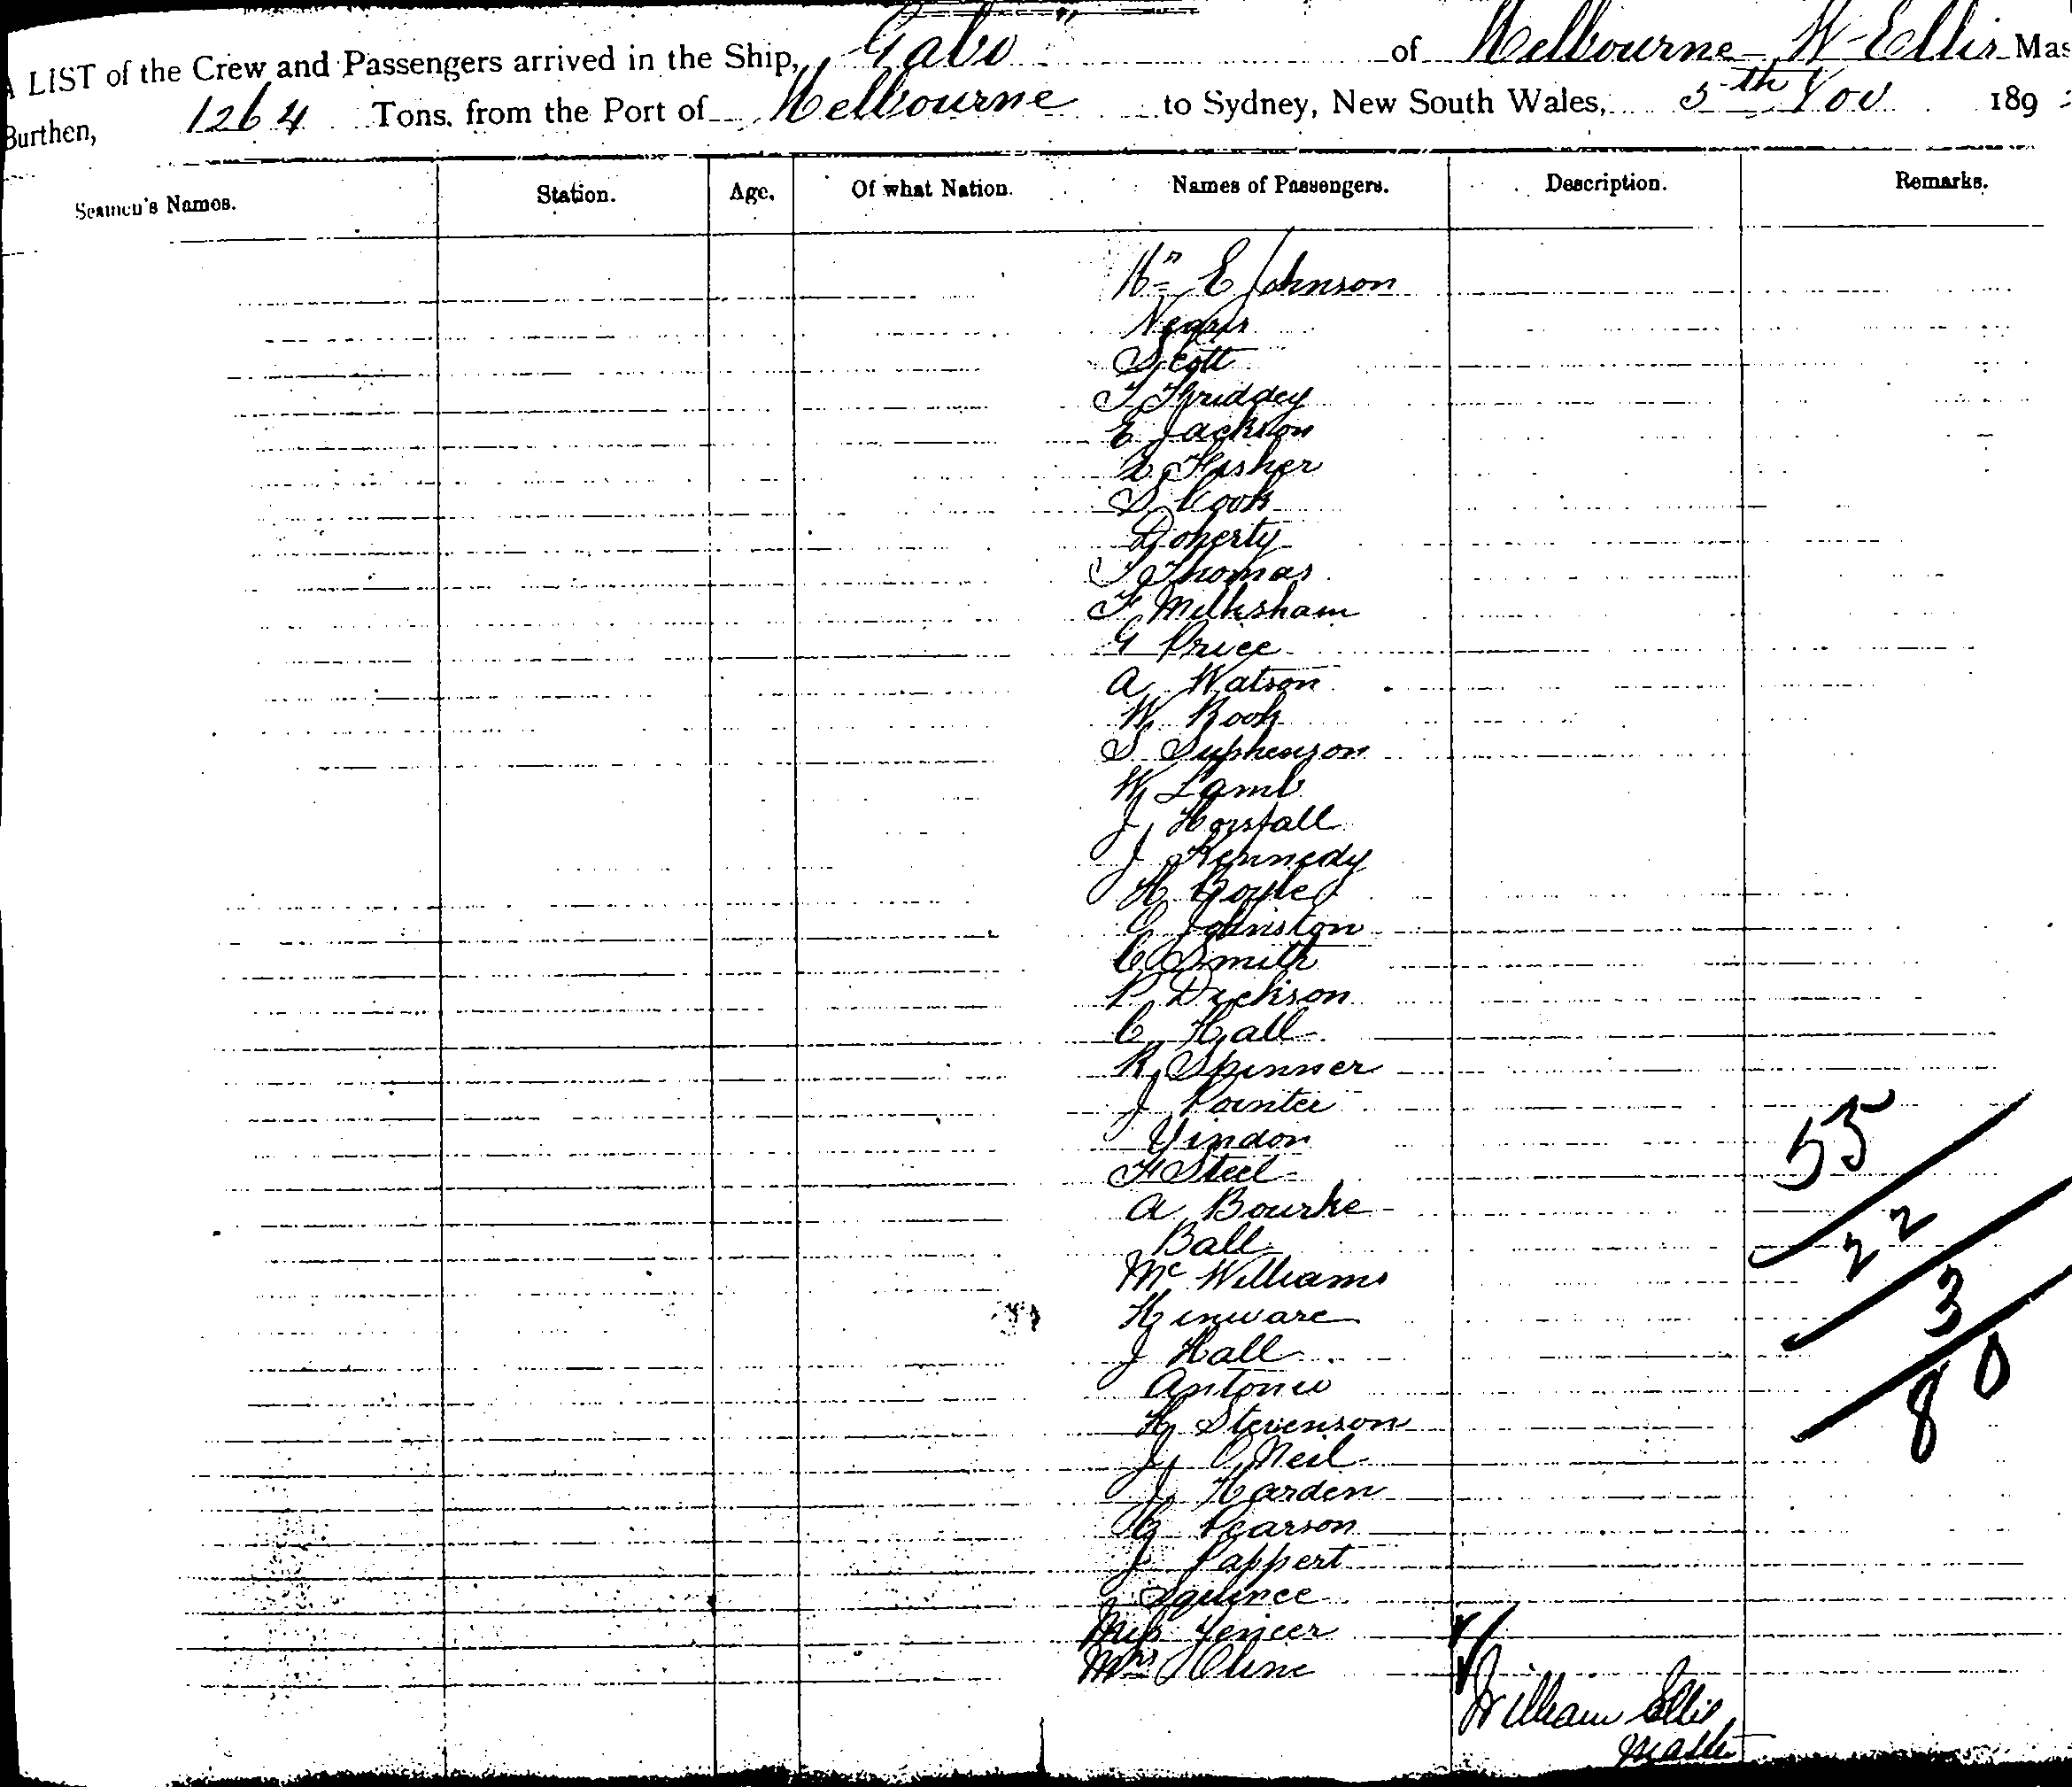 A LIST of the Crew and Passengers arrived in the Ship, Gabo of Melbourne W Ellis Mas
Burthen, 1264 Tons. from the Port of Melbourne to Sydney, New South Wales, 5th Nov 189
Seamen's Names. Station. Age. Of what Nation. Names of Passengers. Description. Remarks.
E Johnson
Scott
E Jackson
Fisher
S Cook
Doherty
T Thomas
F Milksham
G Price
A Watson
W Rook
S Stephenson
W Lamb
J Horsfall
J Kennedy
H Boyle
C Johnston
C Smith
P Dickson
C Hall
R Spinner
J Pointer
Yindon
F Steel
A Bourke
Ball
Mc Williams
Kinware
J Hall
Antonio
H Stevenson
J O'Neil
J Harden
G Pearson
J Pappert
Squince
Miss
Mrs Cline
55
22
3
80
William Ellis
Master